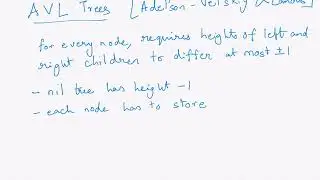 AVL Trees [Adelson-Velskiy &
for every node, requires heights of left and
right children to differ at most ±1
- nil tree has height -1
- each node has to store